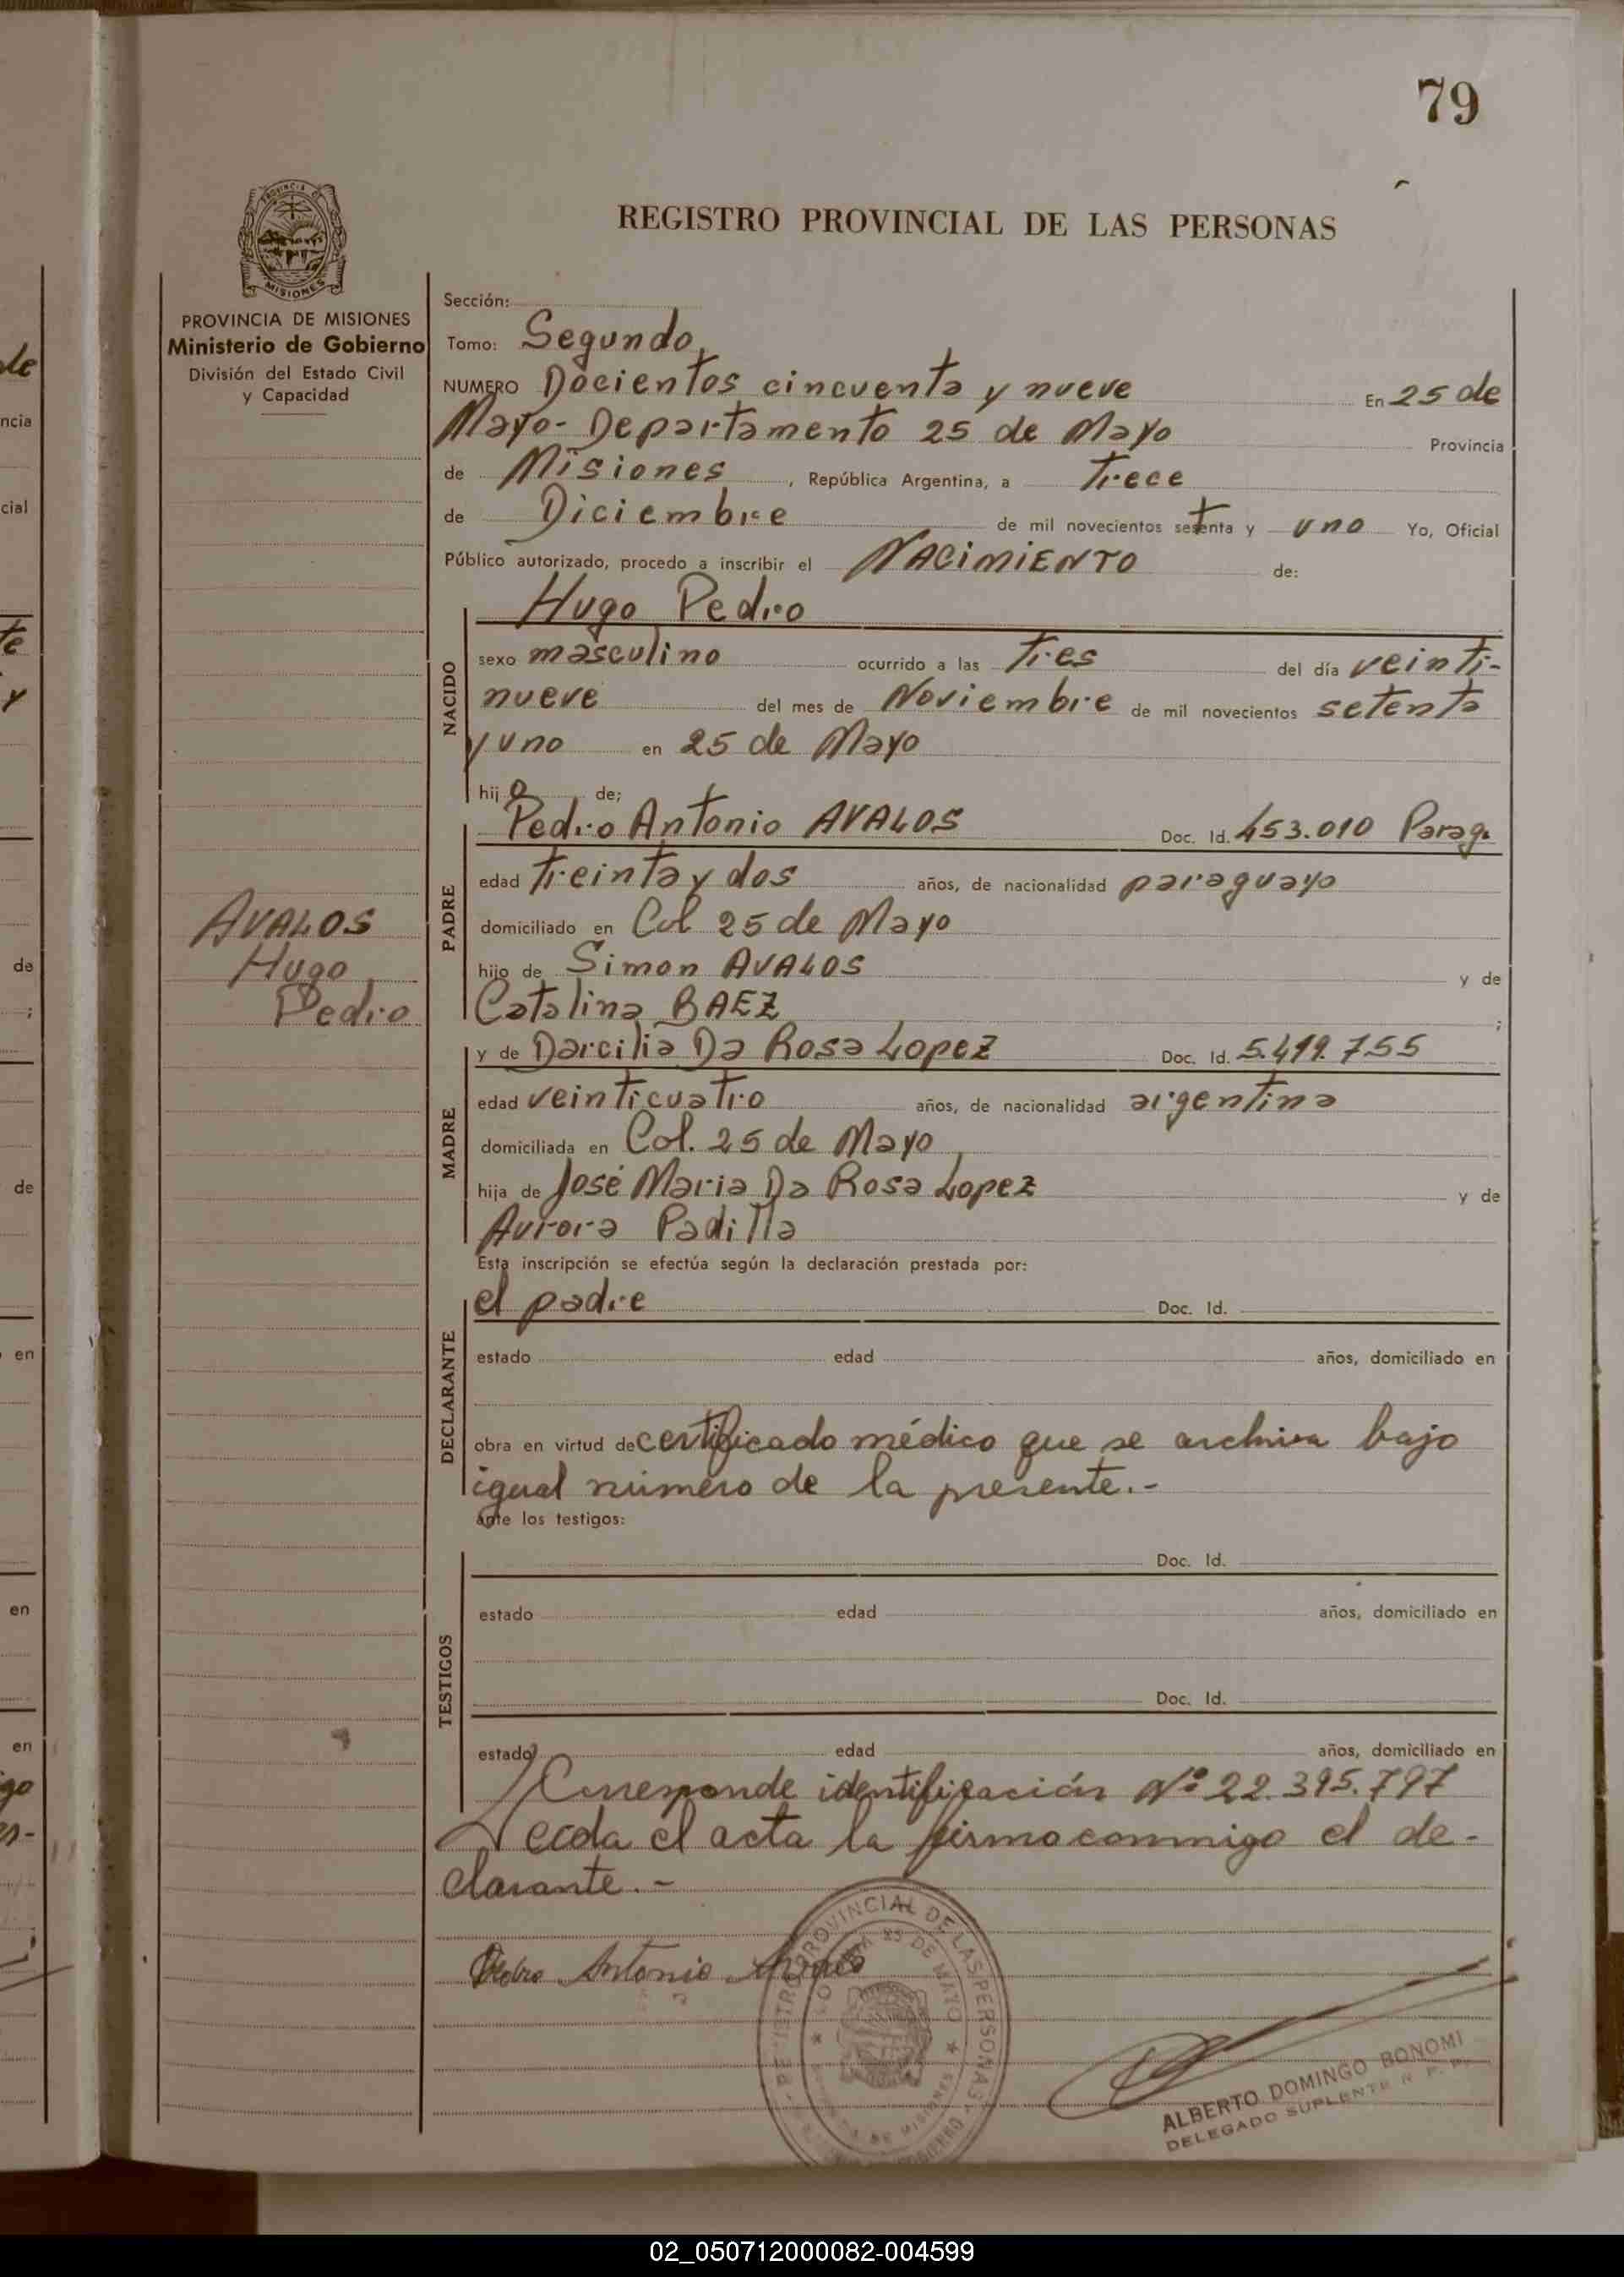 79
REGISTRO PROVINCIAL DE LAS PERSONAS
PROVINCIA DE MISIONES
Ministerio de Gobierno
División del Estado Civil
y Capacidad
Sección:
Tomo: Segundo
NUMERO Docientos cincuenta y nueve En 25 de
Mayo- Departamento 25 de Mayo Provincia
de Misiones, República Argentina, a Trece
de Diciembre de mil novecientos setenta y uno Yo, Oficial
Público autorizado, procedo a inscribir el NACIMIENTO de:
Hugo Pedro
NACIDO
sexo masculino ocurrido a las Tres del día veinti-
nueve del mes de Noviembre de mil novecientos setenta
y uno en 25 de Mayo
hijo de;
PADRE
Pedro Antonio AVALOS Doc. Id. 453.010 Parag.
edad Treinta y dos años, de nacionalidad paraguayo
domiciliado en Col 25 de Mayo
hijo de Simon AVALOS y de
Catalina BAEZ ;
AVALOS
Hugo
Pedro
MADRE
y de Darcilia Da Rosa Lopez Doc. Id. 5.499.755
edad veinticuatro años, de nacionalidad argentina
domiciliada en Col. 25 de Mayo
hija de José Maria Da Rosa Lopez y de
Aurora Padilla
Esta inscripción se efectúa según la declaración prestada por:
DECLARANTE
el padre Doc. Id.
estado edad años, domiciliado en
obra en virtud de certificado médico que se archiva bajo
igual número de la presente.-
ante los testigos:
TESTIGOS
Doc. Id.
estado edad años, domiciliado en
Doc. Id.
estado edad años, domiciliado en
Corresponde identificación Nº 22.395.797
Leida el acta la firma conmigo el de-
clarante.-
Pedro Antonio Avalos
PROVINCIAL DE LAS PERSONAS
25 DE MAYO
DE MISIONES
ALBERTO DOMINGO BONOMI
DELEGADO SUPLENTE R. P. P.
02_050712000082-004599